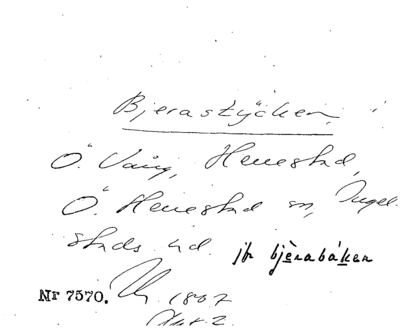 Bjerastycken,
Ö. Vång, Henestad,
Ö. Henestad sn, Ingel-
stads hd. jfr bjèrabáken
Nr 7570. 1807
Akt 2